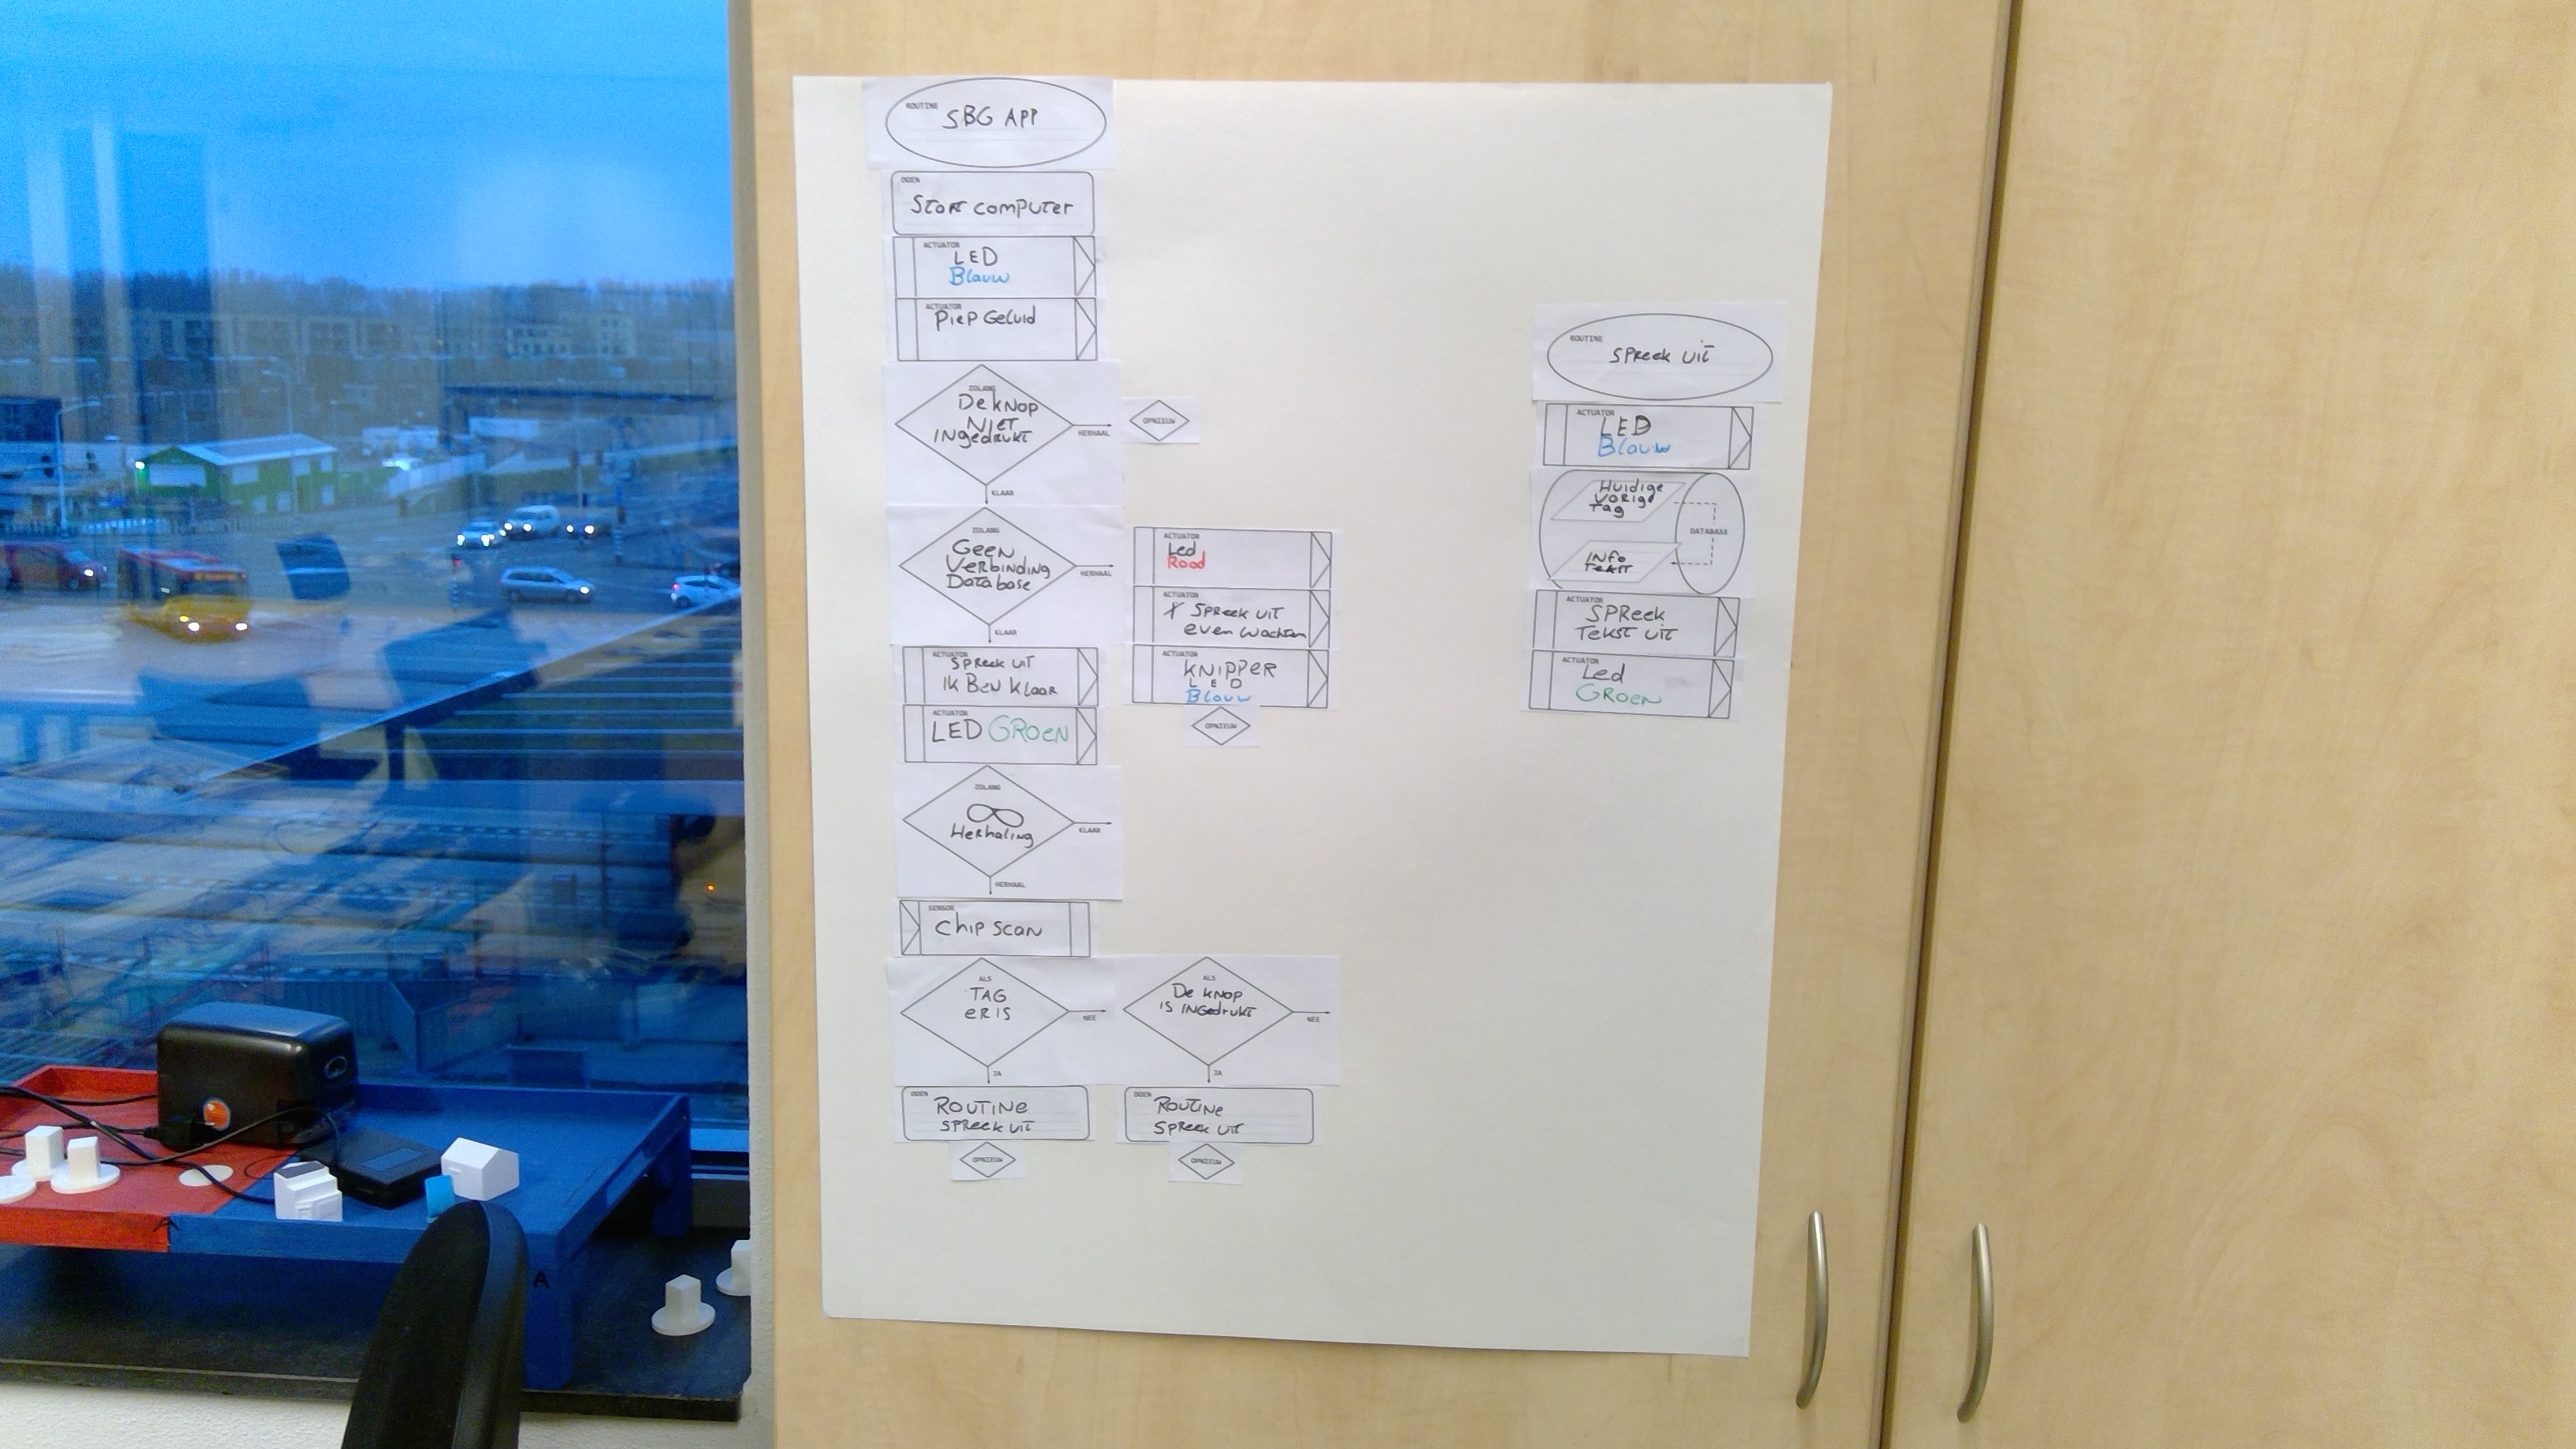 ROUTINE
SBG APP
DOEN
Start computer
ACTUATOR
LED
Blauw
ACTUATOR
Piep Geluid
ZOLANG
De knop
NIET
INgedrukt
HERHAAL
OPNIEUW
KLAAR
ZOLANG
Geen
Verbinding
Database
HERHAAL
KLAAR
ACTUATOR
Led
Rood
ACTUATOR
Spreek uit
even wachten
ACTUATOR
KNIPPER
LED
Blauw
OPNIEUW
ACTUATOR
Spreek uit
IK Ben Klaar
ACTUATOR
LED GROEN
ZOLANG
∞
Herhaling
KLAAR
HERHAAL
SENSOR
Chip scan
ALS
TAG
er is
NEE
JA
ALS
De knop
is INGedrukt
NEE
JA
DOEN
ROUTINE
Spreek uit
OPNIEUW
DOEN
Routine
Spreek uit
OPNIEUW
ROUTINE
Spreek uit
ACTUATOR
LED
Blauw
Huidige
Vorige
Tag
DATABASE
INFO
Tekst
ACTUATOR
SPReek
Tekst uit
ACTUATOR
Led
GROEN
A
A